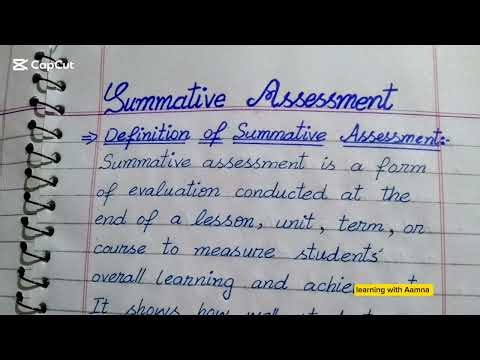 CapCut
Summative Assessment
⇒ Definition of Summative Assessment:-
Summative assessment is a form
of evaluation conducted at the
end of a lesson, unit, term, or
course to measure students'
overall learning and
learning with Aamna
It shows how well